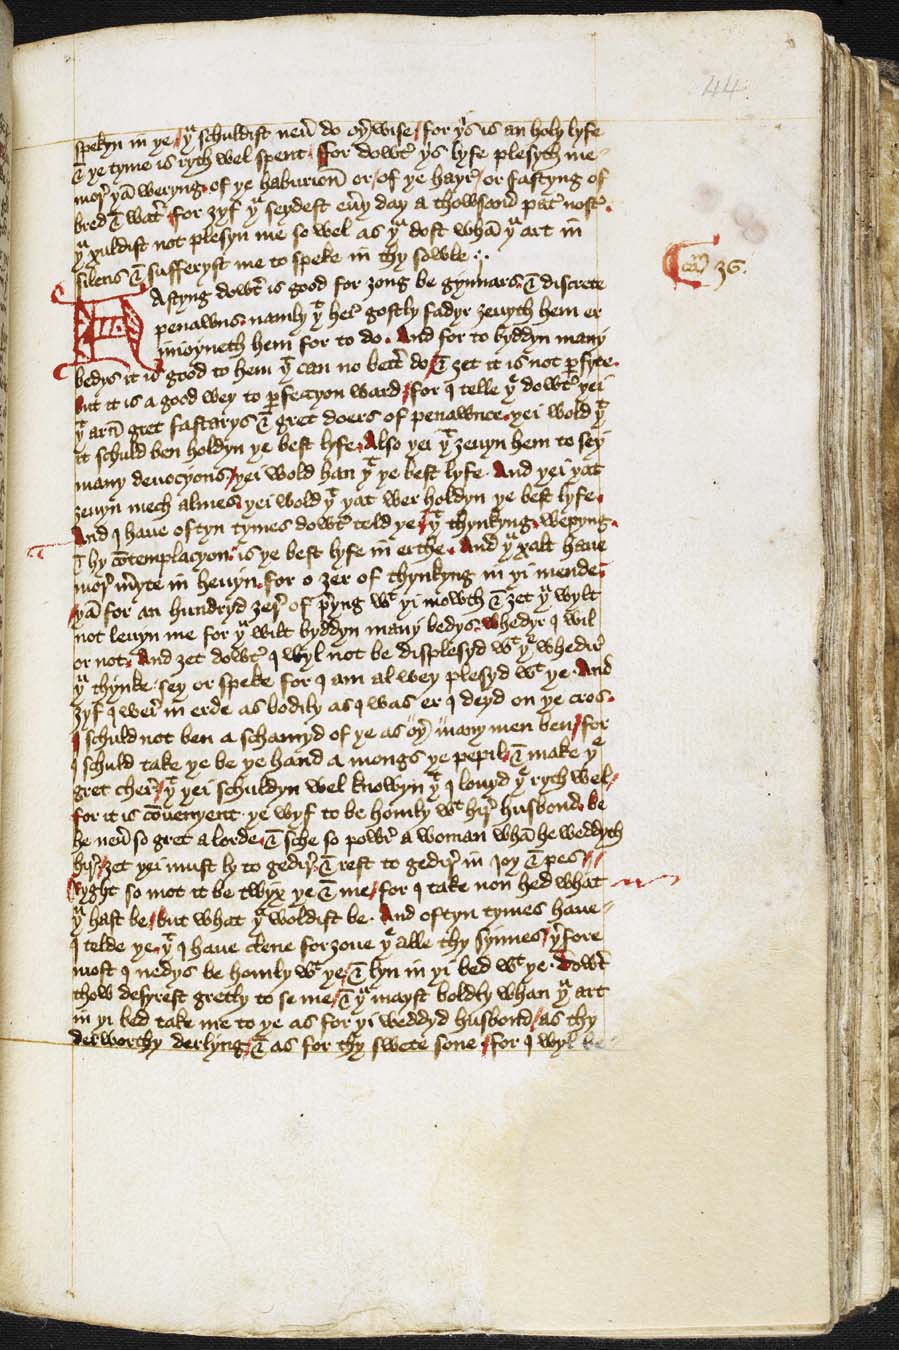 44
spekyn in ye / yͣ schuldist neuͬ do oyͬ wise / for yͥs is an holy lyfe
& ye tyme is rych wel spent. ffor dowtͬ yͥs lyfe plesyth me
morͤ yā weryng of ye haburionͫ or / of ye hayrͤ / or fastyng of
bred & watͬ / for zyf yͧ seydest euͬy day a thowsand patͬ nostͬ.
yͧ xuldist not plesyn me so wel as yͧ dost whā yͧ art in
silens & sufferyst me to speke in thy sowle :·
cam̄ 36.
Fastyng dowtͬ is good for zong be gynnars. & discrete
penawns. namly yͭ herͤ gostly fadyr zeuyth hem er
inioyneth hem for to do. And for to byddyn many
bedys it is good to hem yͭ can no bettͬ do / & zet it is not ꝑfyte.
But it is a good wey to ꝑfeccyon ward / for I telle yͤ dowtͬ yei
yͭ arn̄ gret fastarys & gret doers of penawnce. yei wold yͭ
it schuld ben holdyn ye best lyfe. Also yei yͭ zeuyn hem to sey
many deuocyons / yei wold han yͭ ye best lyfe. And yei yat
zeuyn mech almes. yei wold yͭ yat wer holdyn ye best lyfe.
And I haue oftyn tymes dowtͬ teld ye / yͭ thynkyng. wepyng.
& hy cōtemplacyon. is ye best lyfe in erthe. And yͧ xalt haue
morͤ m̄yte in heuyn. for o zer of thynkyng in yi mende.
yā for an hundryd zerͤ of p̄yng wͭ yi mowth & zet yͧ wylt
not leuyn me for yͧ wilt byddyn many bedys. whedyr I wil
or not. And zet dowtͬ I wyl not be displesyd wͭ yͤ whedirͤ
yͧ thynke. sey or speke for I am al wey plesyd wͭ ye. And
zyf I werͤ in erde as bodily as I was er I deyd on ye cros.
I schuld not ben a schamyd of ye as oyͬ many men ben / for
I schuld take ye be ye hand a mongs ye pepil. & make yͤ
gret cherͤ / yͭ yei schuldyn wel knowyn yͭ I louyd yͤ rych wel /
for it is cōuenyent ye wyf to be homly wͭ hirͤ husbond. be
he neuͬ so gret a lorde. & sche so powrͤ a woman whā he weddyth
hirͤ / zet yei must ly to gedirͤ. & rest to gedirͤ in Joy & pes //
Ryght so mot it be twyx ye & me / for I take non hed what
yͧ hast be / but what yͧ woldist be. And oftyn tymes haue
I telde ye. yͭ I haue clene forzoue yͤ alle thy synnes / yͬfore
most I nedys be homly wͭ ye / & lyn in yi bed wͭ ye. dowtͬ
thow desyrest gretly to se me / & yͧ mayst boldly whan yͧ art
in yi bed take me to ye as for yi weddyd husbond / as thy
derworthy derlyng / & as for thy swete sone / for I wyl be